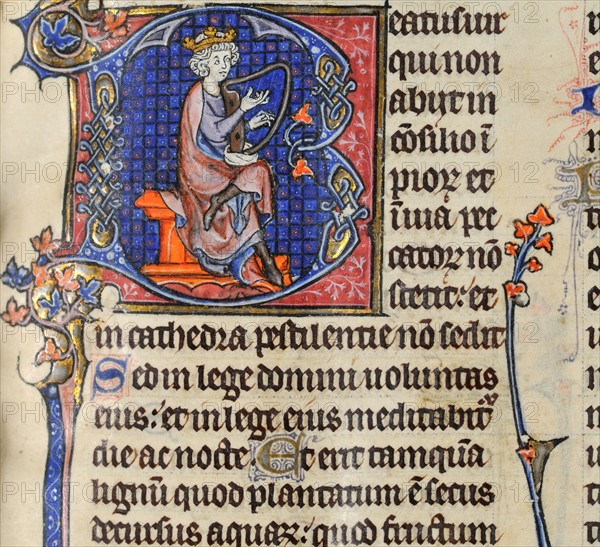 B
eatus uir
qui non
abijt in
cōsilio ī
pioꝝ et
ī uia pec
catoꝝ nō
stetit: et
in cathedra pestilentie nō sedit
Sed in lege domini uoluntas
eius: et in lege eius meditabit᷑
die ac nocte Et erit tamquā
lignū quod plantatum ē secus
decursus aquaꝝ: quod fructum